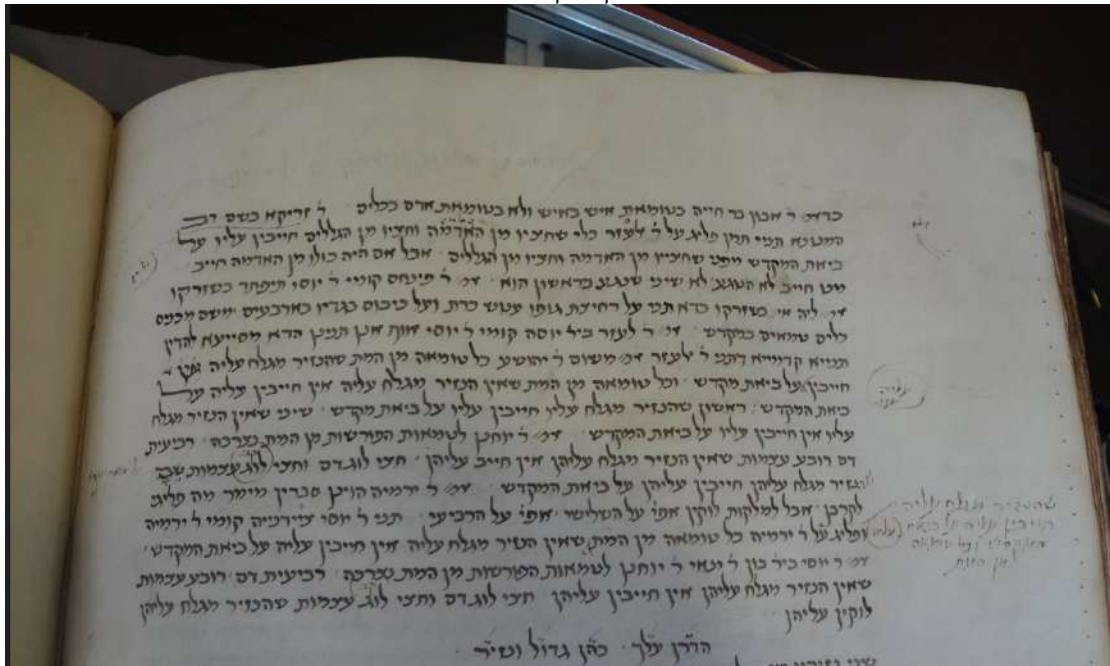 כדאמ׳ ר׳ אבון בר חייה בטומאת איש באיש ולא בטומאת אדם בכלים ׳ ר׳ זריקא בשם רב
המטנא תניי תרין פליג על ר׳ לעזר כלי שחציו מן האדמה וחציו מן הגללים חייבין עליו על
ביאת המקדש מפני שחציו מן האדמה וחציו מן הגללים ׳ אבל אם היה כולו מן האדמה חייב
לא שיני שנגע בראשון הוא ׳ אמ׳ ר׳ פינחס קומי ר׳ יוסי תיפתר כשזרקו
אמ׳ ליה אי כשזרקו כדא תני על רחיצת גופו ענוש כרת ועל כיבוס בגדיו בארבעים ׳ משם מכניס
כלים טמאים במקדש ׳ אמ׳ ר׳ לעזר ביר׳ יוסה קומי ר׳ יוסי אנן תנינן הדא מסייעא להדין
תנייא קדמייא דתני ר׳ לעזר אמ׳ משום ר׳ יהושע כל טומאה מן המת שהנזיר מגלח עליה
חייבין על ביאת מקדש ׳ וכל טומאה מן המת שאין הנזיר מגלח עליה אין חייבין עליה על
ביאת המקדש ׳ ראשון שהנזיר מגלח עליו חייבין עליו על ביאת מקדש ׳ שיני שאין הנזיר מגלח
עליו אין חייבין עליו על ביאת המקדש ׳ אמ׳ ר׳ יוחנן לטמאות הפורשות מן המת נצרכה ׳ רביעית
דם רובע עצמות שאין הנזיר מגלח עליהן אין חייב עליהן ׳ חצי לוג דם וחצי לוג עצמות
הנזיר מגלח עליהן חייבין עליהן על ביאת המקדש ׳ אמ׳ ר׳ ירמיה הוינן סברין מימר מה פליגי
לקרבן ׳ אבל למלקות לוקין אפי׳ על השלישי ׳ אפי׳ על הרביעי ׳ תני ר׳ יוסי ציידנייה קומי ר׳ ירמיה
ופליג על ר׳ ירמיה כל טומאה מן המת שאין הנזיר מגלח עליה אין חייבין עליה על ביאת המקדש ׳
אמ׳ ר׳ יוסי ביר׳ בון ר׳ ינאי ר׳ יוחנן לטמאות הפורשות מן המת נצרכה ׳ רביעית דם ׳ רובע עצמות
שאין הנזיר מגלח עליהן אין חייבין עליהן ׳ חצי לוג דם וחצי לוג עצמות שהנזיר מגלח עליהן
לוקין עליהן
הדרן עלך ׳ כהן גדול ונזיר ׳
שהנזיר מגלח עליה
חייבין עליה על ביאת
המקדש וכל טומאה
מן המת